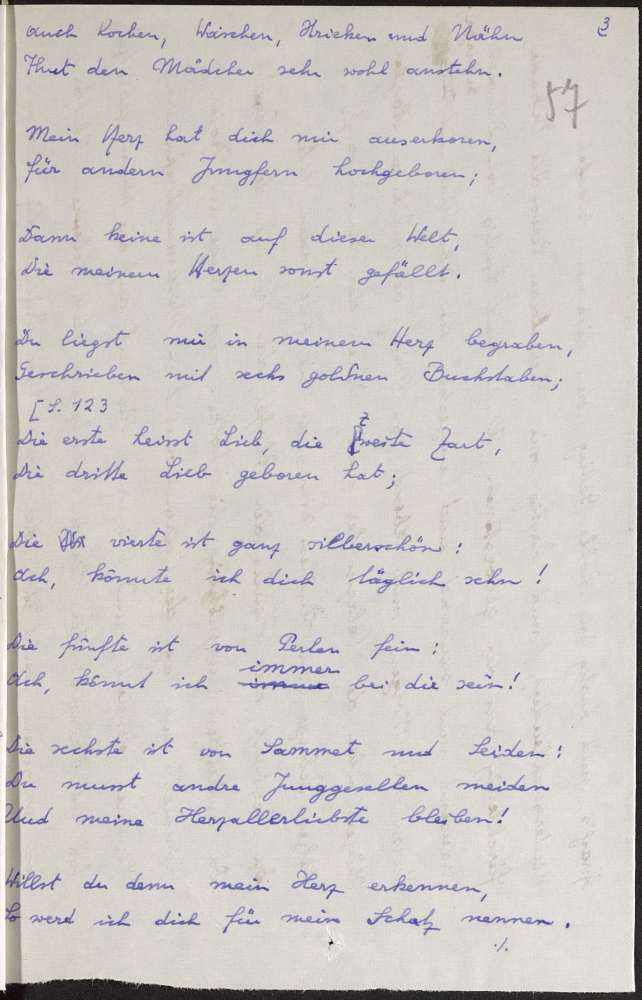 3
auch Kochen, Waschen, Stricken und Nähn
Thut den Mädchen sehr wohl anstehn.
57
Mein Herz hat dich mir auserkoren,
für andern Jungfern hochgeboren;
Dann keine ist auf dieser Welt,
Die meinem Herzen sonst gefällt.
Du liegst mir in meinem Herz begraben,
Geschrieben mit sechs goldnen Buchstaben;
[S. 123
Die erste heisst Lieb, die zweite Zart,
Die dritte Lieb geboren hat;
Die vierte ist ganz silberschön:
Ach, könnte ich dich täglich sehn!
Die fünfte ist von Perlen fein:
Ach, könnt ich immer bei dir sein!
Die sechste ist von Sammet und Seiden:
Du musst andre Junggesellen meiden
Und meine Herzallerliebste bleiben!
Willst du denn mein Herz erkennen,
So werd ich dich für mein Schatz nennen.
./.